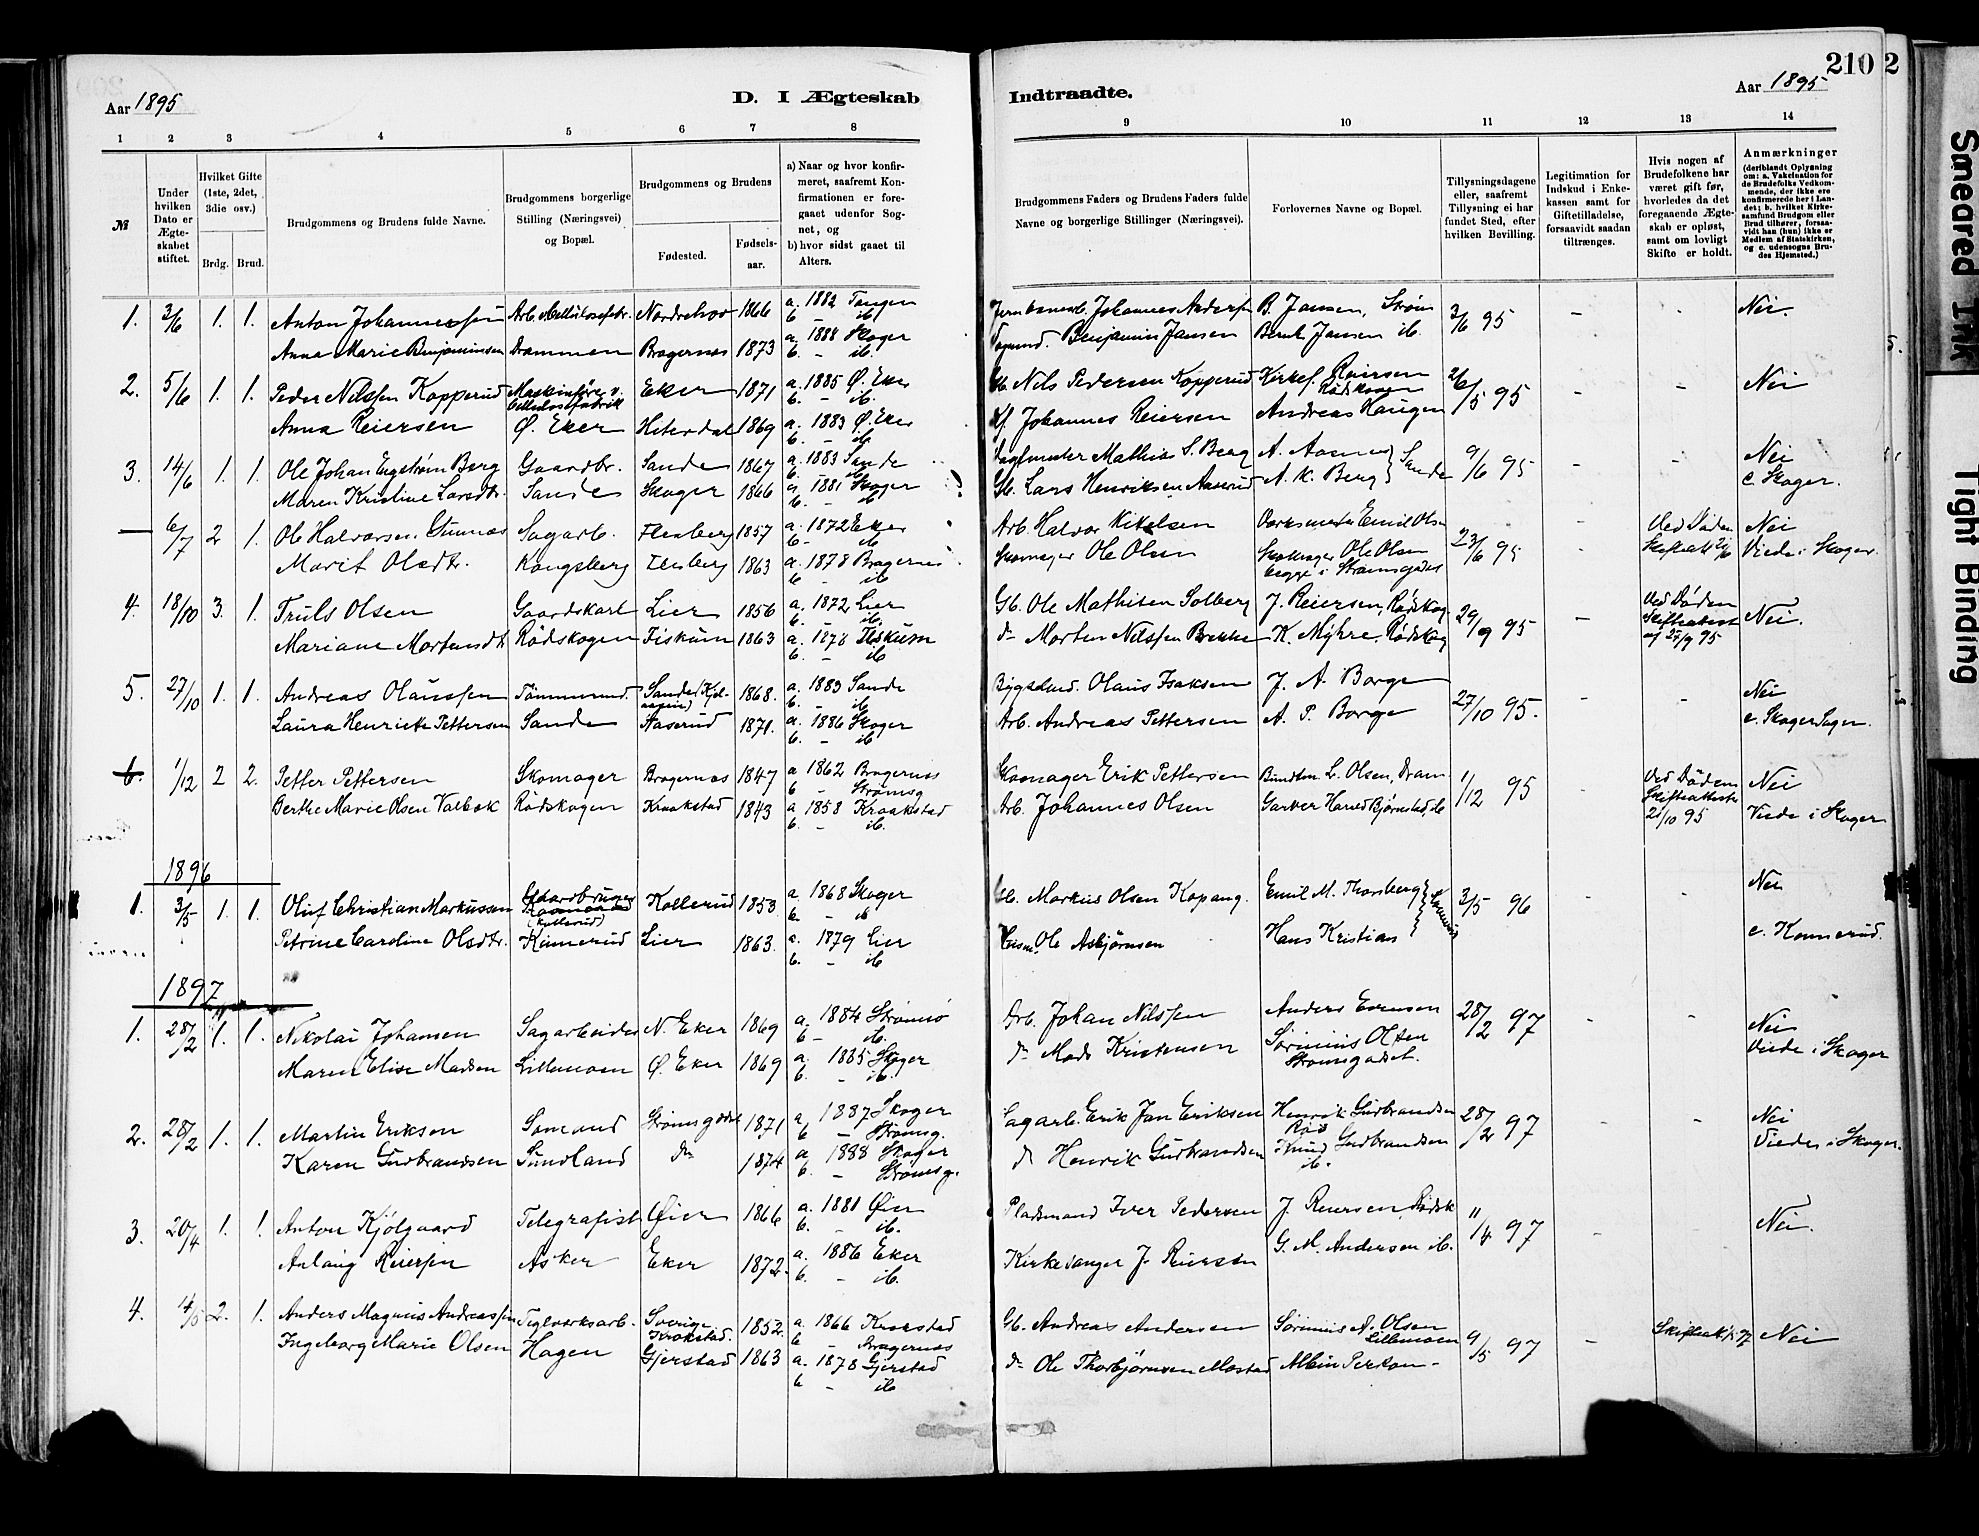 210 2
Aar 1895
D. I Ægteskab
Indtraadte.
Aar 1895
1 2 3 4 5 6 7 8
9 10 11 12 13 14
№
Under hvilken Dato er Ægteskabet stiftet.
Hvilket Gifte (1ste, 2det, 3die osv.)
Brdg. Brud.
Brudgommens og Brudens fulde Navne.
Brudgommens borgerlige Stilling (Næringsvei) og Bopæl.
Brudgommens og Brudens
Fødested. Fødselsaar.
a) Naar og hvor konfirmeret, saafremt Konfirmationen er foregaaet udenfor Sognet, og
b) hvor sidst gaaet til Alters.
Brudgommens Faders og Brudens Faders fulde Navne og borgerlige Stillinger (Næringsvei).
Forlovernes Navne og Bopæl.
Tillysningsdagene eller, saafremt Tillysning ei har fundet Sted, efter hvilken Bevilling.
Legitimation for Indskud i Enkekassen samt for Giftetilladelse, forsaavidt saadan tiltrænges.
Hvis nogen af Brudefolkene har været gift før, hvorledes da det foregaaende Ægteskab er opløst, samt om lovligt Skifte er holdt.
Anmærkninger (deriblandt Oplysning om: a. Vakcination for de Brudefolks Vedkommende, der ikke ere konfirmerede her i Landet; b. hvilket Kirkesamfund Brudgom eller Brud tilhører, forsaavidt han (hun) ikke er Medlem af Statskirken, og c. udensogns Brudes Hjemsted.)
1. 3/6 1. 1. Anton Johannessen Nordrehov 1866 a. 1882 Tangen b. – ib. Johannes Anders B. Jansen, Strøm 3/6 95 – – Nei.
Anna Marie Benjaminsen Drammen Bragernæs 1873 a. 1888 Skoger b. – ib. Benjamin Jansen Bernt Jansen ib.
2. 5/6 1. 1. Peder Nilssen Kopperud Maskinfører v. Cellulosefabrik Eker 1871 a. 1885 Ø. Eker b. – ib. Nils Pedersen Kopperud Kirkes. Reiersen Rødskogen 26/5 95 – – Nei
Anna Reiersen Ø. Eker Hiterdal 1869 a. 1883 Ø. Eker b. – ib. Johannes Reiersen Andreas Haugen
3. 14/6 1. 1. Ole Johan Engstrøm Berg Gaardbr. Sande 1867 a. 1883 Sande Mathias S. Berg A. Aasnes } Sande 9/6 95 – – Nei
Maren Kristine Larsdtr. Sande Skoger 1866 a. 1881 Skoger b. – ib. Gb. Lars Henriksen Aaserud A. K. Berg c. Skoger.
— 6/7 2 1. Ole Halvorsen Sagarb. Flesberg 1857 a. 1872 Eker b. – ib Arb. Halvor Kittelsen Emil Olsen 23/6 95 – Ved Døden Nei
Marit Olsdtr. Kongsberg Flesberg 1863 a. 1878 Bragernes b. – ib Skomager Ole Olsen Skomager Ole Olsen begge i Strømsgodset Viede i Skoger.
4. 18/10 3. 1. Truls Olsen Gaardskarl Lier 1856 a. 1872 Lier b. – ib. Gb. Ole Mathisen Solberg J. Reiersen, Rødskog 29/9 95 – Ved Døden Skifteattest af 27/9 95 Nei.
Mariane Mortensdtr Rødskogen Fiskum 1863 a. 1878 Fiskum b. – ib do Morten Nilssen Brekke K. Myhre, Rødskog
5. 27/10 1. 1. Andreas Olaussen Tømmermd. Sande 1868. a. 1883 Sande b. – ib Olaus Isaksen J. A. Borge 27/10 95. – – Nei
Laura Henriette Pettersen Sande Aaserud 1871. a. 1886 Skoger b. – ib Arb. Andreas Pettersen A. P. Borge c. Skoger Sogn.
6. 1/12 2 2. Petter Pettersen Skomager Bragernæs 1847 a 1862 Bragernæs b – Strømsg Skomager Erik Pettersen L. Olsen, Dram 1/12 95 – Ved Døden Skifteattest 21/10 95 Nei
Berthe Marie Olsen Valbak Rødskogen Kraakstad 1843 a 1858 Kraakstad b. – ib. Arb. Johannes Olsen Garver Bjørnstad, ib Viede i Skoger
1896
1. 3/5 1. 1. Oluf Christian Markussen Gaardbruger (Kollerud) Kollerud 1853 a. 1868 Skoger b. – ib Markus Olsen Kopang. Emil M. Thorsberg } 3/5 96 Nei
Petrine Caroline Olsdtr. Konnerud Lier 1863. a. 1879 Lier b. – ib Ole Asbjørnsen Hans Kristian c. Konnerud.
1897
1. 28/2 1. 1. Nikolai Johansen Sagarbeider N. Eker 1869 a. 1884 Strømsø b – ib. Arb. Johan Nilssen Anders Evensen 28/2 97 – – Nei
Maren Elise Madsen Lillemoen Ø. Eker 1869 a. 1885 Skoger b. – ib. do Mads Kristensen Sørinius Olsen Strømsgodset. Viede i Skoger
2. 28/2 1. 1. Martin Eriksen Sømand Strømsgodset 1871 a. 1887 Skoger b – Strømsg. Sagarb. Erik Jan Eriksen Henrik Gudbrandsen 28/2 97 – – Nei
Karen Gudbrandsen Sundland do 1874 a 1888 Skoger b. – Strømsg. d Henrik Gudbrandsen Knud Gudbrandsen ib. Viedes i Skoger.
3. 20/4 1. 1. Anton Kjølgaard Telegrafist Øier 1866 a. 1881 Øier b. – ib. Pladsmand Iver Pedersen J. Reiersen, Rødsk 11/4 97 – Nei.
Anlaug Reiersen Asker Eker 1872. a. 1886 Eker b. – ib. Kirkesanger J. Reiersen G. M. Andersen ib.
4. 14/5 2. 1. Anders Magnus Andreassen Teglverksarb. Sverige Krokstad. 1852. a. 1866 Krokstad b – Bragernæs Gb. Andreas Andersen Sørinius A. Olsen Lillemoen 9/5 97 – Nei
Ingeborg Marie Olsen Hagen Gjerstad 1863 a. 1878 Gjerstad b – ib do Ole Thorbjørnsen Mostad Albin Person –
Smeared Ink
Tight Binding